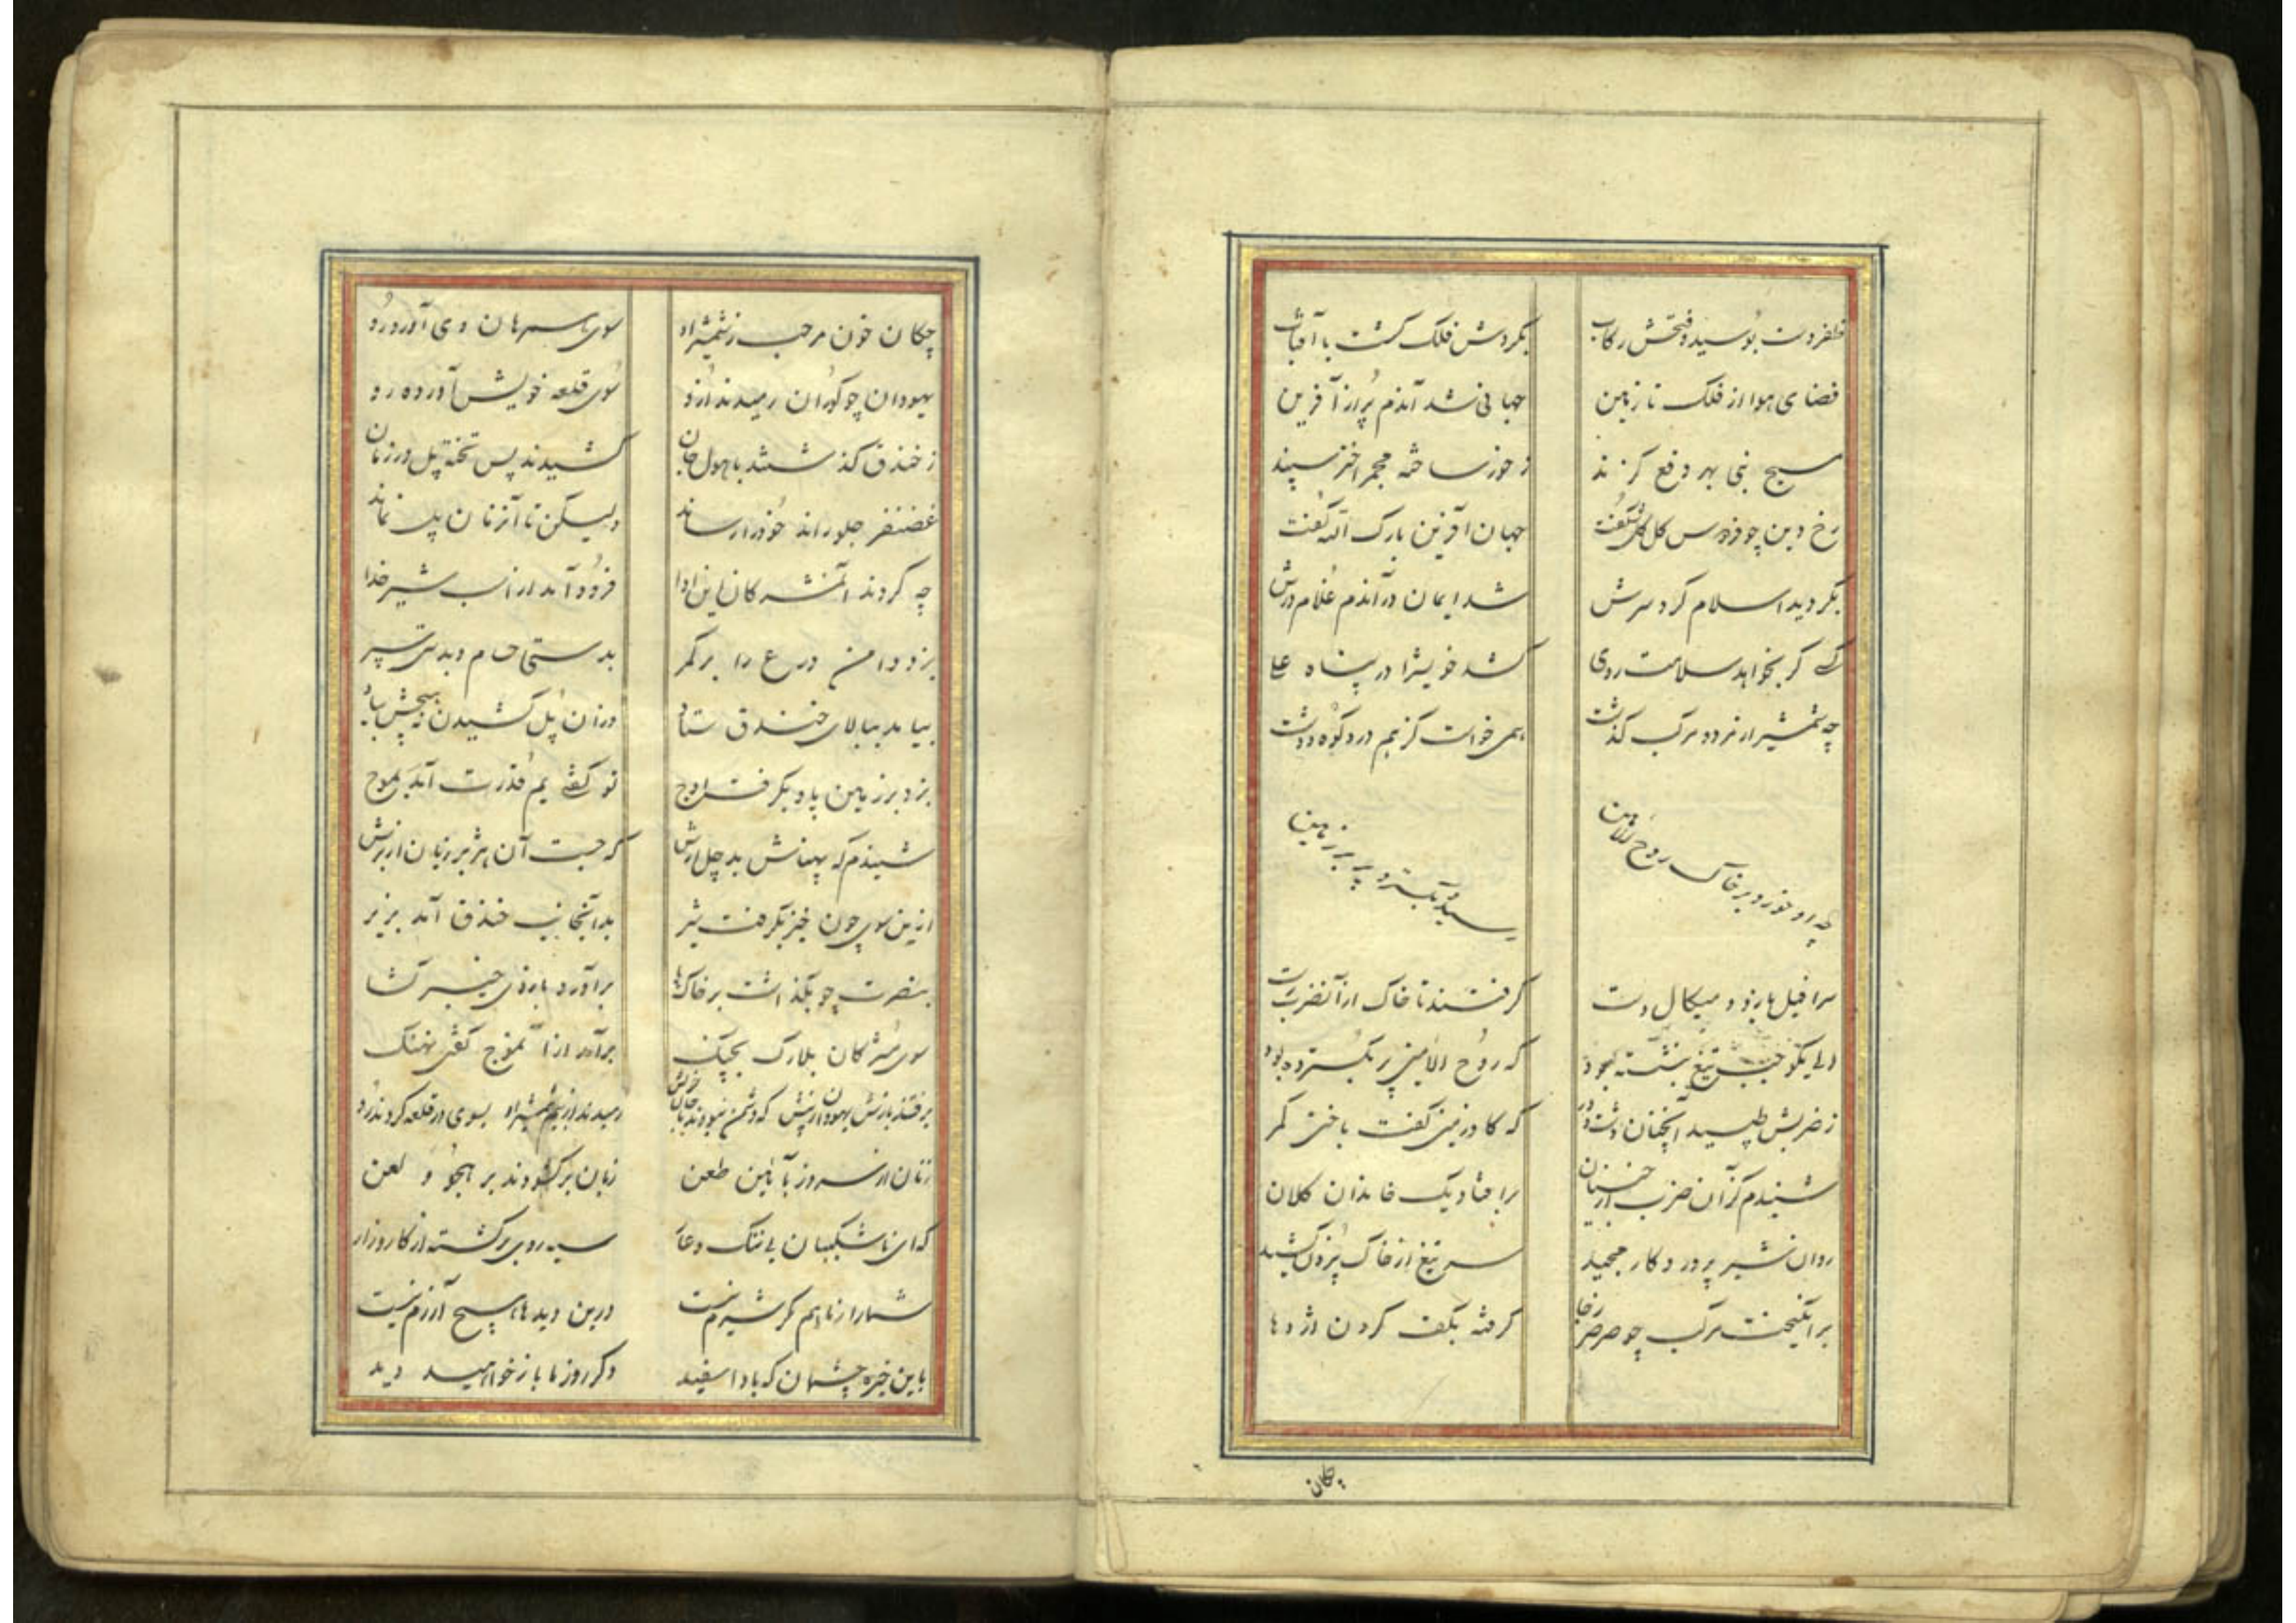 ظفر دست بوسید و فتحش رکاب بکردش فلک کشت با آفتاب
فضای هوا از فلک تا زمین جهانی شد آندم پر از آفرین
مسیح نبی بهر دفع کزند ز خور ساخته مجمر اختر سپند
رخ دین چو فردوس کل کل شکفت جهان آفرین بارک الله کفت
بکردید اسلام کرد سرش شد ایمان در آندم غلام درش
که کر بخواهد سلامت روی کشد خویش را در پناه علی
چه شمشیر از مرد و مرکب کذشت همی خواست کز هم درد کوه و دشت
چه او خورد بر خاک روح الامین سپر بسترد پر بر زمین
سرافیل بازو و میکال دست کرفتند تا خاک از آنضرب رست
که روح الامین پر بکسترده بود
ز ضربش طپید آنچنان دشت و در که کاو زمین کفت باختی کمر
شنیدم کزان ضرب از خیبریان برافتاد یک خاندان کلان
روان شیر پروردکار مجید سر تیغ از خاک بیرون کشید
برانکیخت مرکب چو صرصر ز جا کرفته بکف کردن اژدها
چکان
چکان خون مرحب ز شمشیر او سوی سرهان وی آورد رو
یهودان چو کوران رمیدند ازو سوی قلعه خویش آورده رو
ز خندق کذشتند با هول جان کشیدند پس تخته پل در زمان
غضنفر جلو راند خود را رساند ولیکن تا آنزمان پل نماند
چه کردند آنمشرکان این ادا فرود آمد از اسب شیر خدا
بزد دامن درع را بر کمر بدستی حسام و بدستی سپر
بیامد ببالای خندق ستاد در آن پل کشیدن
بزد بر زمین پا و بکرفت اوج تو کفتی یم قدرت آمد بموج
شنیدم که پهناش بد چل ارش که جست آن هژبر زیان از برش
ازین سوی چون خیز بکرفت شیر بدآنجانب خندق آمد بزیر
بنصرت چو بکذاشت بر خاک پا برآورد بازوی خیبر کشا
سوی مشرکان بلارک بچنک برآمد از آنموج کفتی نهنک
برفتند بازش یهودان ز پیش که دشمن نبودند با جان خویش رمیدند از بیم شمشیر او بسوی در قلعه کردند رو
زنان از سر روز بآئین طعن زبان برکشودند بر هجو و لعن
که ای ناشکیبان بی ننک و عار سیه روی برکشته از کارزار
شما را ز ما هم مکر شرم نیست درین دیدها هیچ آزرم نیست
باین خیره چشمان که بادا سفید دکر روز ما باز خواهید دید